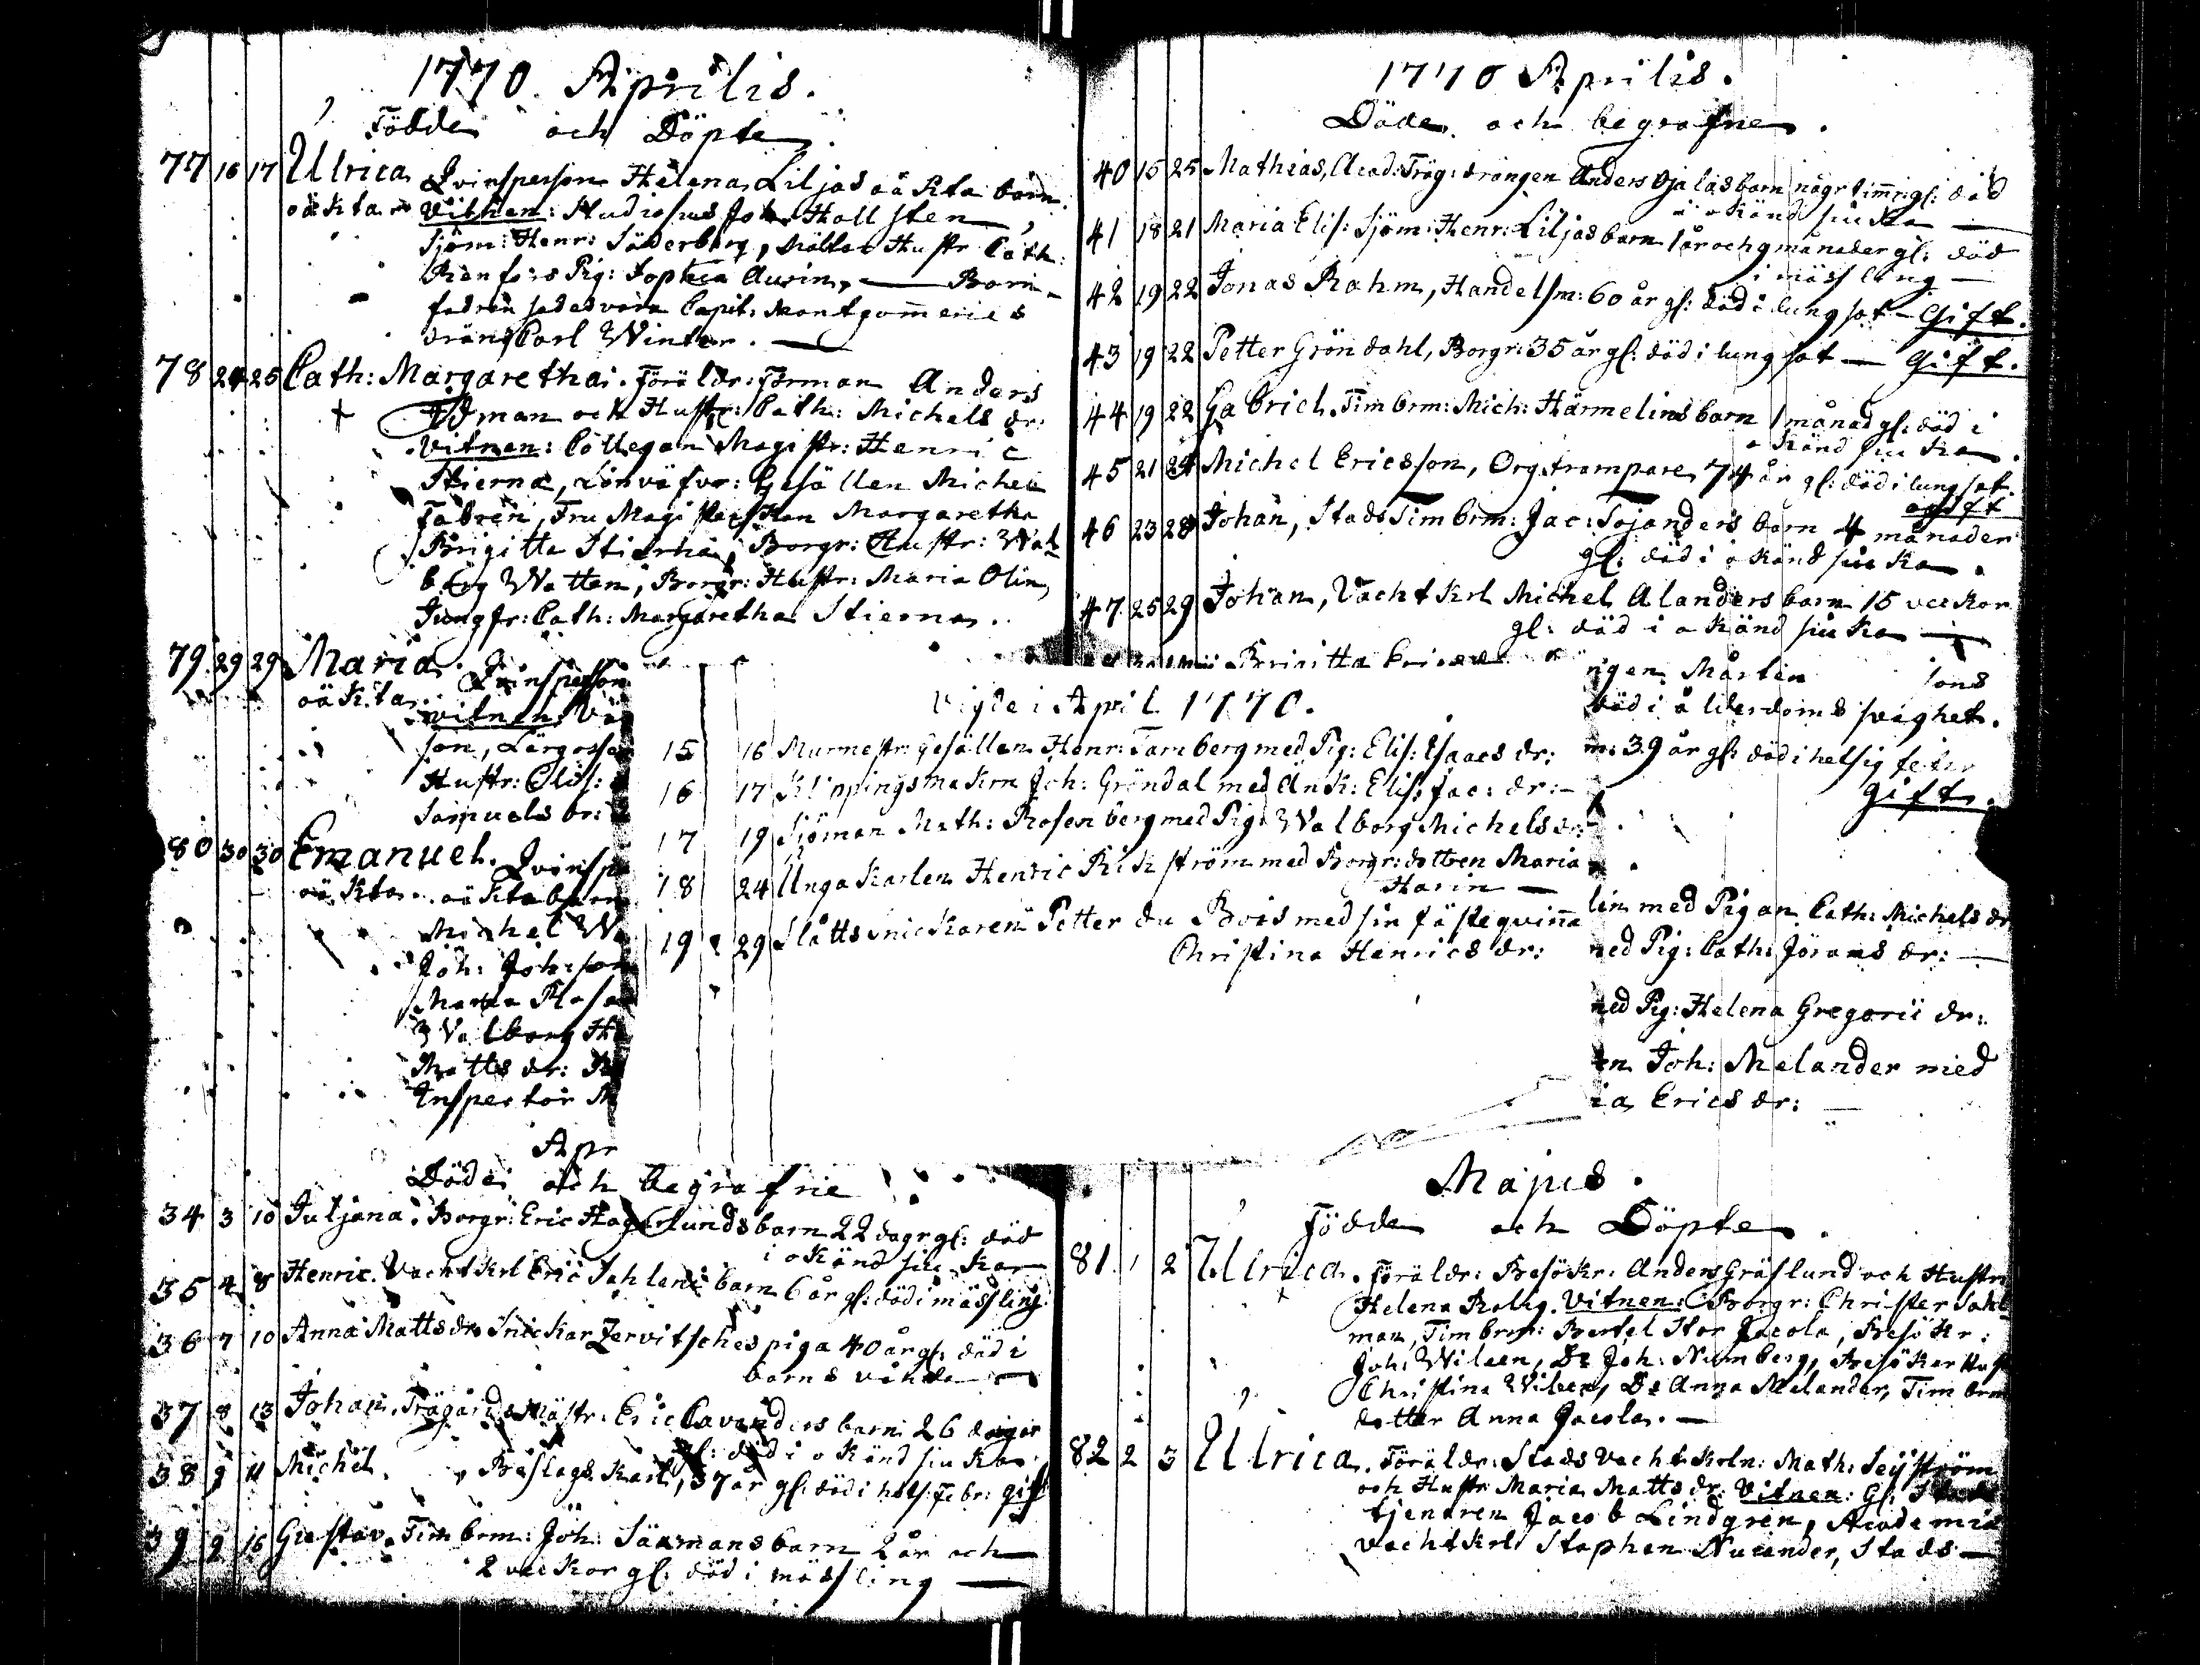 1770. Aprilis.
Födde och Döpte
77 16 17 Ulrica Qvinsperson Helena Liljas oäkta barn.
oäkta Vitnen: Studiosus Joh. Hallsten
Sjöm: Henr: Söderberg, Hustr Cath:
Renfors Pig: Sophia Aurin, — Barn-
fadren sades vara Capit: Montgommeries
dräng Carl Winter. —
78 24 25 Cath: Margaretha. Föräldr: Förman Anders
Ödman och Hustr: Cath: Michels dr:
Vitnen: Collegan Magistr: Henric
Stierna, Gesällen Michel
Fabren, Fru Magisterskan Margaretha
Brigitta Stierna, Borgr: Hustr: Wal-
borg Watten, Borgr: Hustr: Maria Olin,
Jungfr: Cath: Margaretha Stierna.
79. 29 29 Maria. Qvinsperson
oäkta. vitnen
son,
Hustr: Elis:
Samuels dr:
80 30 30 Emanuel. Qvinsp
oäkta. oäkta barn
Michel Wa
Joh: Johsson
Maria Rosa
Walborg He
Matts dr:
Inspector M
Apr
Döde och begrafne
34 3 10 Juljana. Borgr: Eric Hagerlunds barn 22 dagr gl: död
i okänd siukdom
35 4 8 Henric. Vachtkrl Eric Sahlens barn 6 år gl: död i mässling.
36 7 10 Anna Mattsdr Snickar Zervitsches piga 40 år gl: död i
barns vånda —
37 8 13 Johan. Trägårdsmästr: Eric Cavanders barn 26 dagar
gl: död i okänd siuka
38 9 11 Michel. Båslags Karl, 37 år gl: död i hets: febr: gift
39 9 16 Gustav. Timbrm: Joh: Säxmans barn 2 år och
2 veckor gl: död i mässling —
1770 Aprilis.
Döde och begrafne.
40 15 25 Mathias, Acad: Träg: drängen Anders Ojalas barn någr tim̄r gl: död
i okänd siuka —
41 18 21 Maria Elis: Sjöm: Henr: Liljas barn 1 år och 9 månader gl: död
i mässling —
42 19 22 Jonas Rahm, Handelsm: 60 år gl: död i lungsot — Gift.
43 19 22 Petter Gröndahl, Borgr: 35 år gl: död i lungsot — Gift.
44 19 22 Gabriel. Timbrm: Mich: Härmelins barn 1 månad gl: död i
okänd siuka.
45 21 24 Michel Ericsson, Orgtrampare 74 år gl: död i lungsot.
ogift
46 23 28 Johan, Stads Timbrm: Jac: Sojanders barn 4 månader
gl: död i okänd siuka.
47 25 29 Johan, Vachtkrl Michel Alanders barn 15 veckor
gl: död i okänd siuka —
Brigitta Ericsdr
ngen Mårten sons
död i ålderdoms svaghet.
m: 39 år gl: död i hetsig feber
gift.
Vigde i April 1770.
15 16 Murmestr: Gesällen Henr: Tamberg med Pig: Elis: Isaacs dr:
16 17 Klippingsmakrn Joh: Gröndal med Änk: Elis: Jac: dr: —
17 19 Sjöman Math: Rosenberg med Pig: Walborg Michels dr:
18 24 Unga Karlen Henric Rikström med Borgr: dottren Maria
Harin —
19 29 Slåttssnickaren Petter du Bois med sin fästeqvinna
Christina Henrics dr:
lin med Pigan Cath: Michels dr
med Pig: Cath: Jörans dr: —
med Pig: Helena Gregorii dr:
en Joh: Melander med
ia Erics dr: —
Majus.
Födde och Döpte
81. 1 2 Ulrica. Föräldr: Besökr: Anders Gräslund och Hustru
Helena Rolig. Vitnen: Borgr: Christer Sahl
man, Timbrm: Bertel Stor Jacola, Besökr:
Joh: Wileen, Dr Joh: Numberg, Besökar Hustr
Christina Wileen, Dr Anna Melander, Timbrm
dotter Anna Jacola. —
82 2 3 Ulrica. Föräldr: Stads Vachtkrln: Math: Seyström
och Hustr: Maria Matts dr: Vitnen: Gl: Stads
tjenaren Jacob Lindgren, Academiæ
vachtkrl Stephan Nucander, Stads —